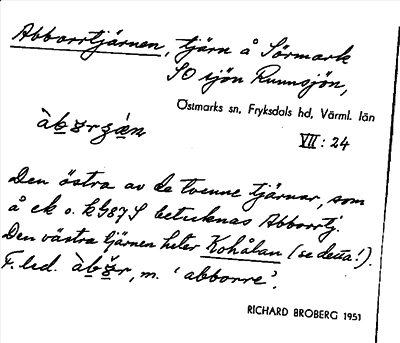 Abborrtjärnen, tjärn å Sörmark
SO sjön Runnsjön,
Östmarks sn, Fryksdals hd, Värml. län
VII: 24
Den östra av de tvenne tjärnar, som
å ek o. k G87 S betecknas Abborrtj.
Den västra tjärnen heter Kohålan (se detta!).
F. led. m. 'abborre'.
RICHARD BROBERG 1951